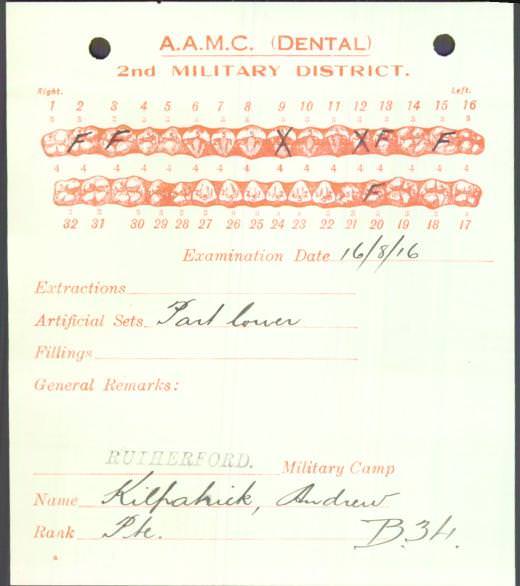 A.A.M.C. (DENTAL)
2nd MILITARY DISTRICT.
Right. Left.
1 2 3 4 5 6 7 8 9 10 11 12 13 14 15 16
F F X X F F
4 4 4 4 4 4 4 4 4 4 4 4 4 4 4 4
F
32 31 30 29 28 27 26 25 24 23 22 21 20 19 18 17
Examination Date 16/8/16
Extractions
Artificial Sets Part lower
Fillings
General Remarks:
RUTHERFORD. Military Camp
Name Kilpatrick, Andrew
Rank Pte. B.34.